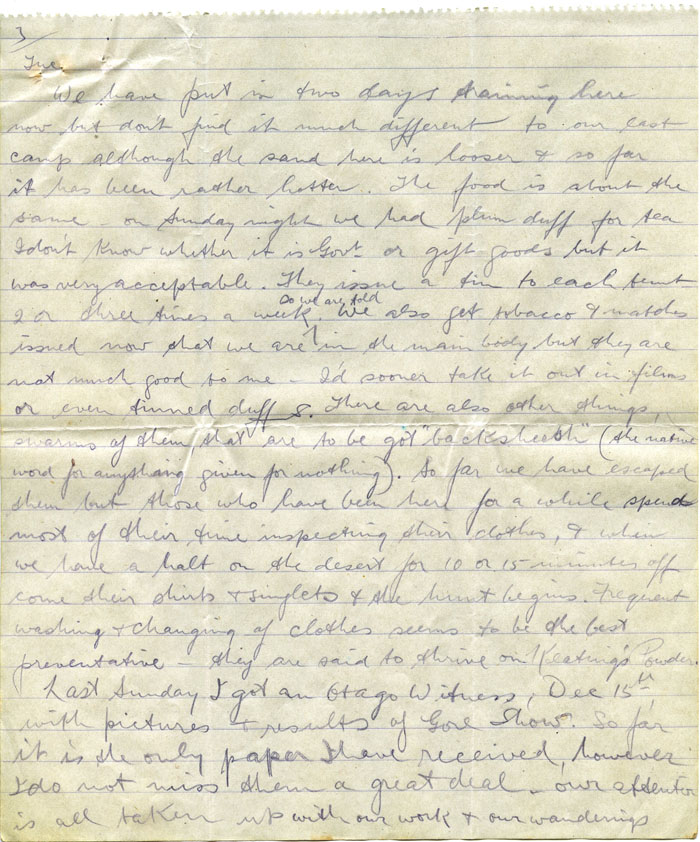 3
Tue.
We have put in two days training here
now but don't find it much different to our last
camp although the sand here is looser & so far
it has been rather hotter. The food is about the
same – on Sunday night we had plum duff for tea
I don't know whether it is Govt or gift goods but it
was very acceptable. They issue a tin to each tent
so we are told
2 or three times a week. We also get tobacco & matches
issued now that we are in the main body but they are
not much good to me – I'd sooner take it out in films
or even tinned duffs. There are also other things,
swarms of them that are to be got "backsheesh" (the native
word for anything given for nothing). So far we have escaped
them but those who have been here for a while spend
most of their time inspecting their clothes, & when
we have a halt on the desert for 10 or 15 minutes off
come their shirts & singlets & the hunt begins. Frequent
washing & changing of clothes seems to be the best
preventative – they are said to thrive on Keating's Powder.
Last Sunday I got an Otago Witness, Dec 15th
with pictures & results of Gore Show. So far
it is the only paper I have received, however
I do not miss them a great deal – our attention
is all taken up with our work & our wanderings